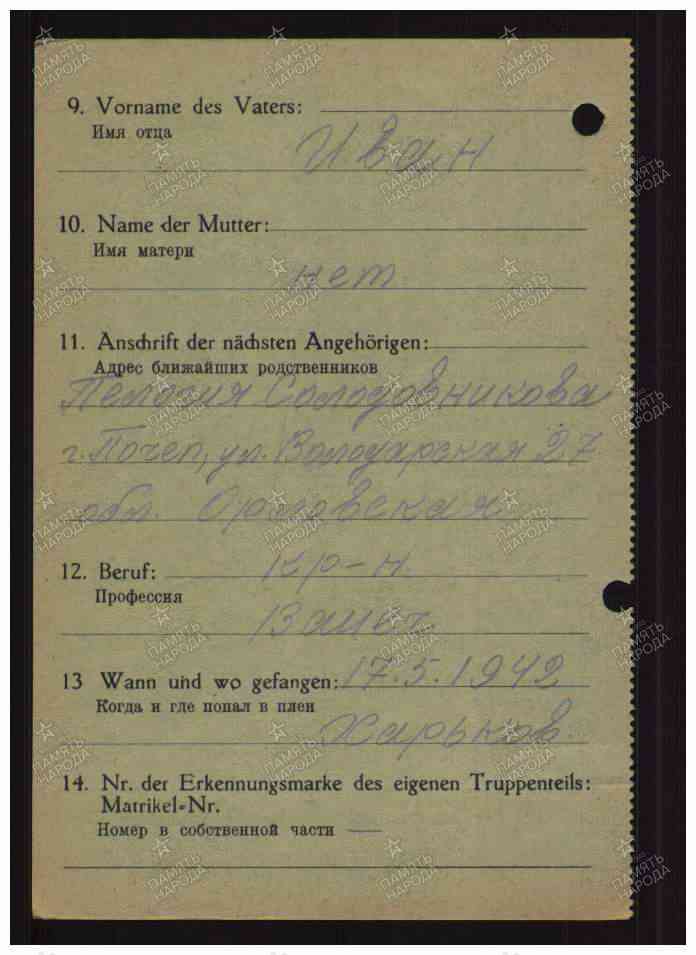 9. Vorname des Vaters:
Имя отца
Иван
10. Name der Mutter:
Имя матери
нет
11. Anschrift der nächsten Angehörigen:
Адрес ближайших родственников
Пелагия Солодовникова
г. Почеп, ул. Володарская 27
обл. Орловская
12. Beruf: кр-н.
Профессия
13 Wann und wo gefangen: 17.5.1942
Когда и где попал в плен
Харьков.
14. Nr. der Erkennungsmarke des eigenen Truppenteils:
Matrikel-Nr.
Номер в собственной части —
ПАМЯТЬ НАРОДА